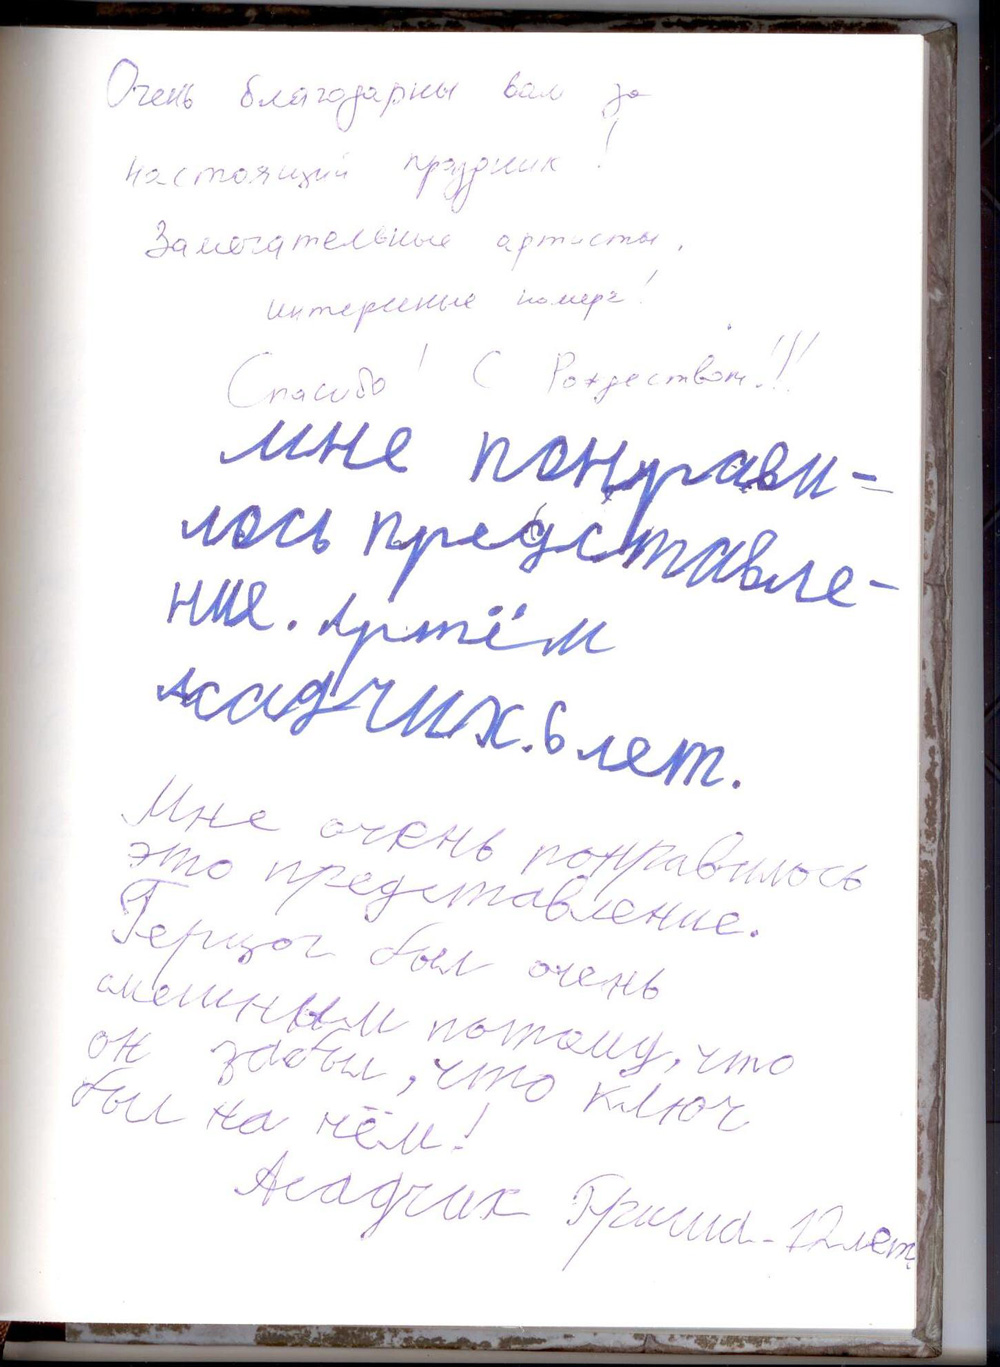 Очень благодарны вам за
настоящий праздник!
Замечательные артисты,
интересные номера!
Спасибо! С Рождеством!!!
мне понрави-
лось представле-
ние. Артём
Асадчих. 6 лет.
Мне очень понравилось
это представление.
Герцог был очень
смешным потому, что
он забыл, что ключ
был на нём!
Асадчих Гриша - 12 лет